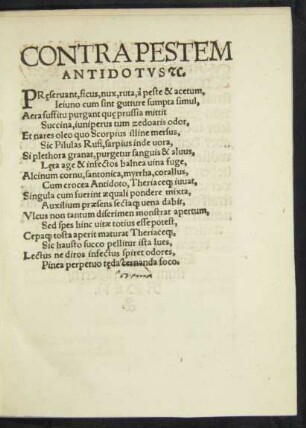 CONTRA PESTEM
ANTIDOTVS &c.
PRęseruant, ficus, nux, ruta, ã peste & acetum,
Ieiuno cum sint gutture sumpta simul,
Aera suffitu purgant quę prussia mittit
Succina, iuniperus tum zedoaris odor,
Et nares oleo quo Scorpius illine mersus,
Sic Pilulas Rufi, sarpius inde uora,
Si plethora granat, purgetur sanguis & aluus,
Lęta age & infectos balnea uina fuge,
Alcinum cornu, santonica, myrrha, corallus,
Cum crocea Antidoto, Theriaceq; iuuat,
Singula cum fuerint æquali pondere mixta,
Auxilium præsens sectaq; uena dabit,
Vlcus non tantum discrimen monstrat apertum,
Sed spes hinc uitæ totius esse potest,
Cepaq; tosta aperit maturat Theriaceq;,
Sic hausto succo pellitur ista lues,
Lectus ne diros infectus spiret odores,
Pinea perpetuo tęda foco.